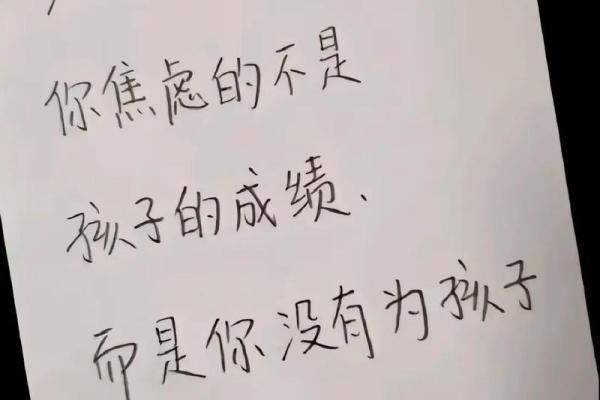 你焦虑的不是
孩子的成绩、
而是你没有为孩子